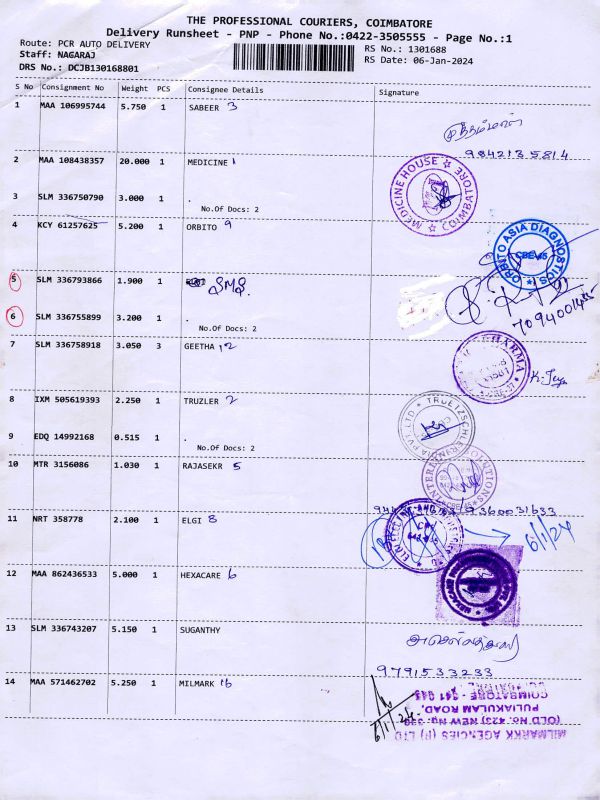 THE PROFESSIONAL COURIERS, COIMBATORE
Delivery Runsheet - PNP - Phone No.:0422-3505555 - Page No.:1
Route: PCR AUTO DELIVERY
RS No.: 1301688
Staff: NAGARAJ
RS Date: 06-Jan-2024
DRS No.: DCJB130168801
S No Consignment No Weight PCS Consignee Details Signature
1 MAA 106995744 5.750 1 SABEER 3
9842135814
2 MAA 108438357 20.000 1 MEDICINE 1
MEDICINE HOUSE ☆ COIMBATORE ☆
3 SLM 336750790 3.000 1 .
No.Of Docs: 2
4 KCY 61257625 5.200 1 ORBITO 9
ORBITO ASIA DIAGNOSTICS
CBE-45
5 SLM 336793866 1.900 1 SMS
6 SLM 336755899 3.200 1 .
No.Of Docs: 2
7094001485
7 SLM 336758918 3.050 3 GEETHA 12
PHARMA
K. Jeya
8 IXM 505619393 2.250 1 TRUZLER 2
TRUETZSCHLER INDIA PVT LTD
9 EDQ 14992168 0.515 1 .
No.Of Docs: 2
10 MTR 3156086 1.030 1 RAJASEKR 5
9360031633
11 NRT 358778 2.100 1 ELGI 8
6/1/24
12 MAA 862436533 5.000 1 HEXACARE 6
13 SLM 336743207 5.150 1 SUGANTHY
9791533233
14 MAA 571462702 5.250 1 MILMARK 16
6/1/24
MILMARKK AGENCIES (P) LTD
(OLD No. 423) NEW No: 339
PULIAKULAM ROAD,
COIMBATORE - 641 045